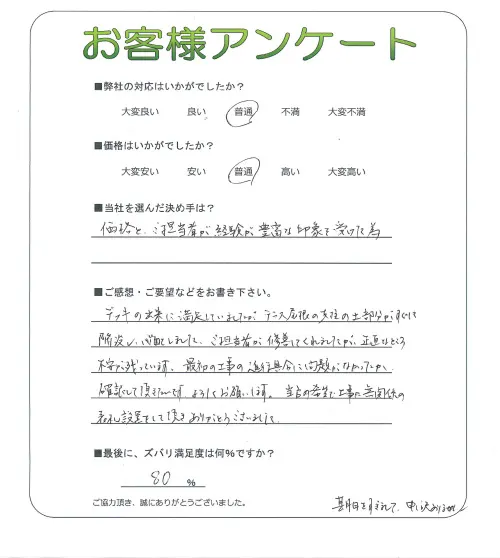 お客様アンケート
■弊社の対応はいかがでしたか？
大変良い 良い 普通 不満 大変不満
■価格はいかがでしたか？
大変安い 安い 普通 高い 大変高い
■当社を選んだ決め手は？
価格と、ご担当者が経験が豊富な印象を受けた為
■ご感想・ご要望などをお書き下さい。
デッキの出来に満足していましたが テラス屋根の支柱の土部分がすぐに
陥没し、ご担当者が修善してくれましたが、正直なところ
不安が残っています。最初の工事の進行具合に問題がなかったか
確認して頂きたいです よろしくお願いします。当方の希望で工事に無関係の
表札設置をして頂きありがとうございました
■最後に、ズバリ満足度は何％ですか？
80 %
ご協力頂き、誠にありがとうございました。